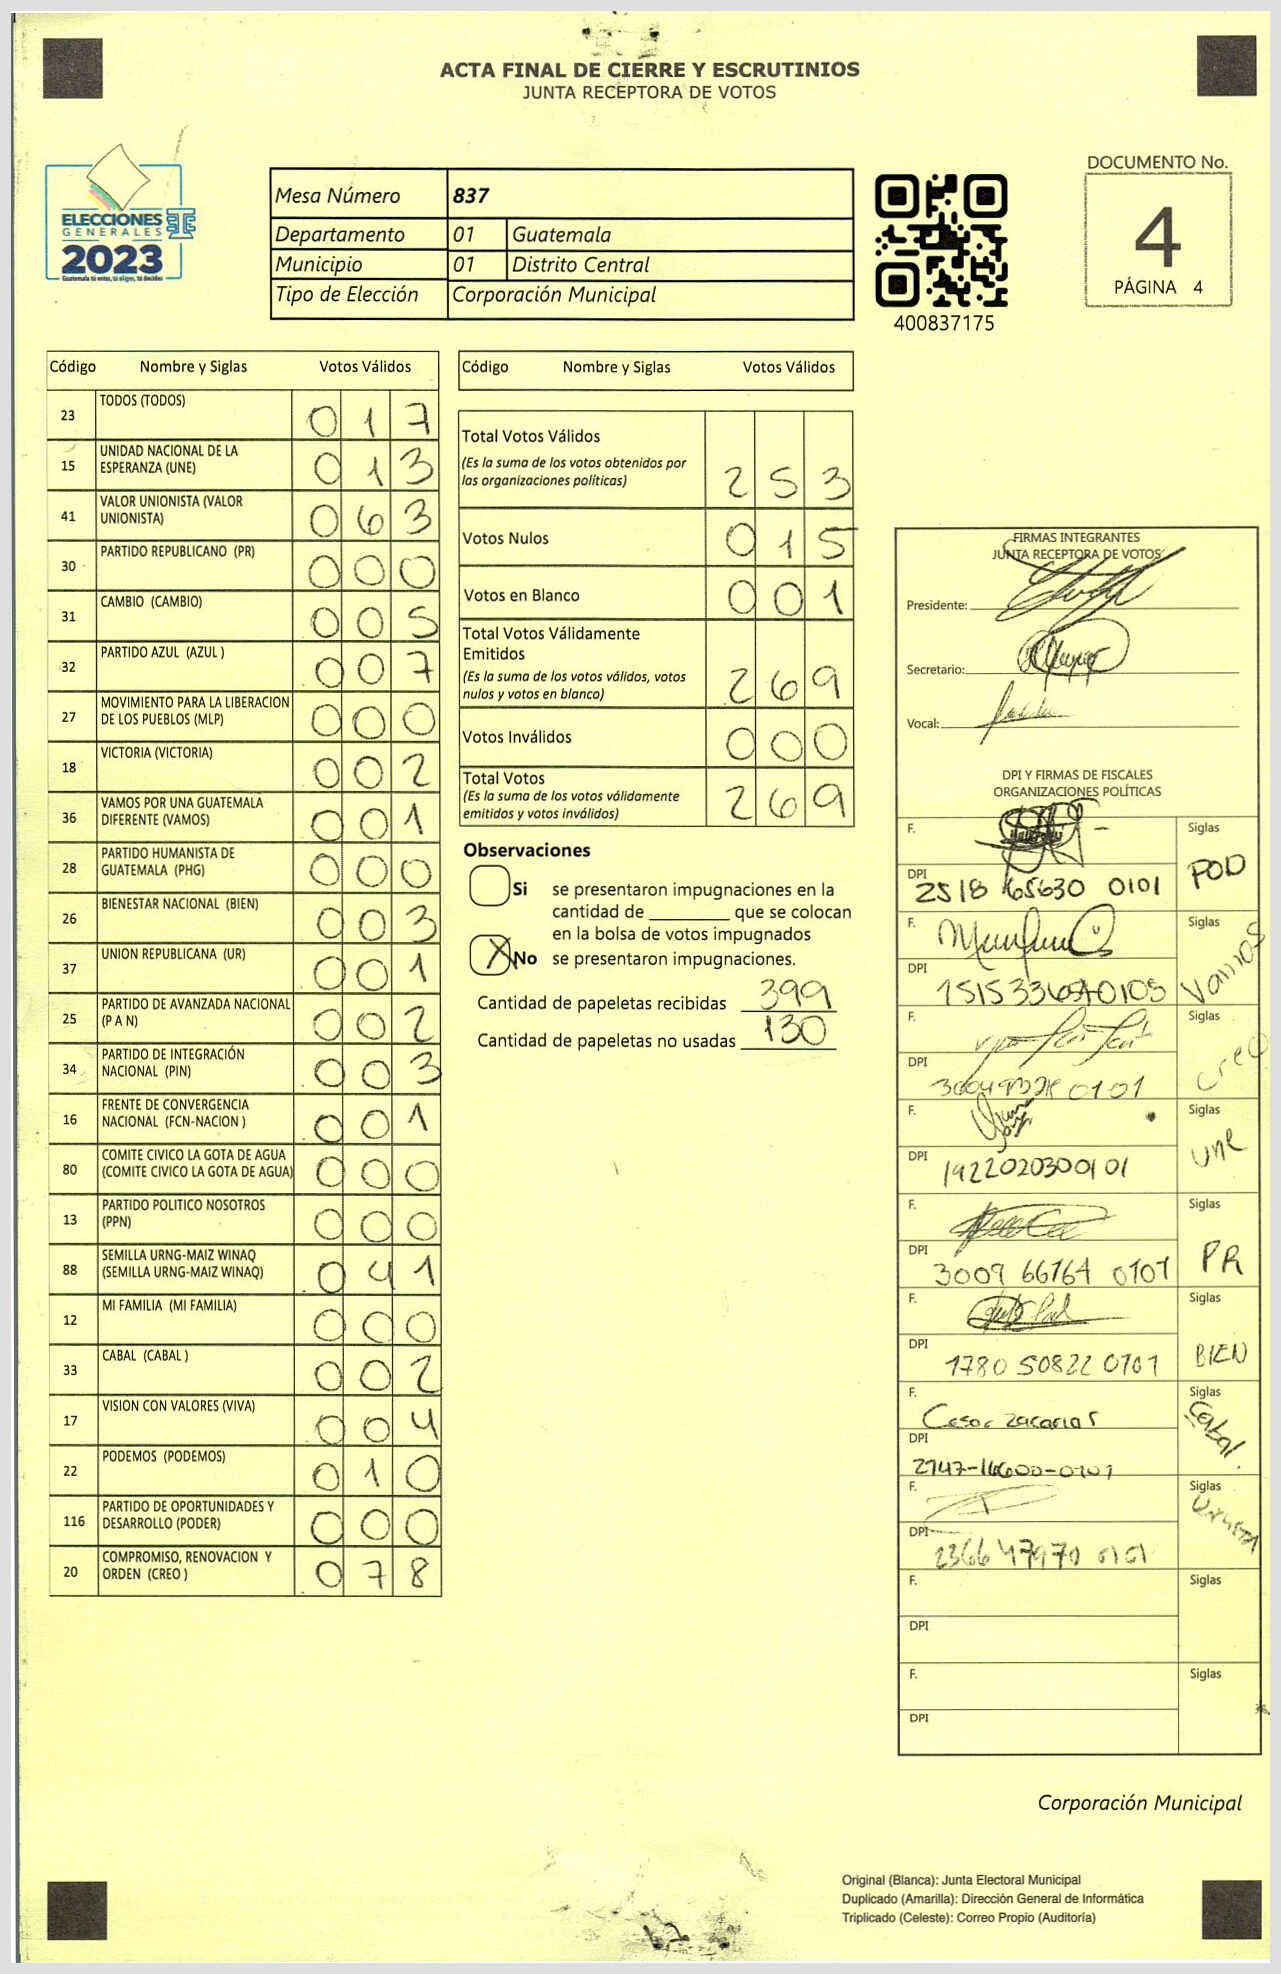 ACTA FINAL DE CIERRE Y ESCRUTINIOS
JUNTA RECEPTORA DE VOTOS
ELECCIONES
GENERALES
2023
Guatemala tú eres, tú eliges, tú decides
Mesa Número 837
Departamento 01 Guatemala
Municipio 01 Distrito Central
Tipo de Elección Corporación Municipal
400837175
DOCUMENTO No.
4
PÁGINA 4
Código Nombre y Siglas Votos Válidos
23 TODOS (TODOS) 0 1 7
15 UNIDAD NACIONAL DE LA
ESPERANZA (UNE) 0 1 3
41 VALOR UNIONISTA (VALOR
UNIONISTA) 0 6 3
30 PARTIDO REPUBLICANO (PR) 0 0 0
31 CAMBIO (CAMBIO) 0 0 5
32 PARTIDO AZUL (AZUL ) 0 0 7
27 MOVIMIENTO PARA LA LIBERACION
DE LOS PUEBLOS (MLP) 0 0 0
18 VICTORIA (VICTORIA) 0 0 2
36 VAMOS POR UNA GUATEMALA
DIFERENTE (VAMOS) 0 0 1
28 PARTIDO HUMANISTA DE
GUATEMALA (PHG) 0 0 0
26 BIENESTAR NACIONAL (BIEN) 0 0 3
37 UNION REPUBLICANA (UR) 0 0 1
25 PARTIDO DE AVANZADA NACIONAL
(P A N) 0 0 2
34 PARTIDO DE INTEGRACIÓN
NACIONAL (PIN) 0 0 3
16 FRENTE DE CONVERGENCIA
NACIONAL (FCN-NACION ) 0 0 1
80 COMITE CIVICO LA GOTA DE AGUA
(COMITE CIVICO LA GOTA DE AGUA) 0 0 0
13 PARTIDO POLITICO NOSOTROS
(PPN) 0 0 0
88 SEMILLA URNG-MAIZ WINAQ
(SEMILLA URNG-MAIZ WINAQ) 0 4 1
12 MI FAMILIA (MI FAMILIA) 0 0 0
33 CABAL (CABAL ) 0 0 2
17 VISION CON VALORES (VIVA) 0 0 4
22 PODEMOS (PODEMOS) 0 1 0
116 PARTIDO DE OPORTUNIDADES Y
DESARROLLO (PODER) 0 0 0
20 COMPROMISO, RENOVACION Y
ORDEN (CREO ) 0 7 8
Código Nombre y Siglas Votos Válidos
Total Votos Válidos
(Es la suma de los votos obtenidos por
las organizaciones políticas) 2 5 3
Votos Nulos 0 1 5
Votos en Blanco 0 0 1
Total Votos Válidamente
Emitidos
(Es la suma de los votos válidos, votos
nulos y votos en blanco) 2 6 9
Votos Inválidos 0 0 0
Total Votos
(Es la suma de los votos válidamente
emitidos y votos inválidos) 2 6 9
Observaciones
Si se presentaron impugnaciones en la
cantidad de ________ que se colocan
en la bolsa de votos impugnados
X No se presentaron impugnaciones.
Cantidad de papeletas recibidas 399
Cantidad de papeletas no usadas 130
FIRMAS INTEGRANTES
JUNTA RECEPTORA DE VOTOS
Presidente:
Secretario:
Vocal:
DPI Y FIRMAS DE FISCALES
ORGANIZACIONES POLÍTICAS
F. Siglas
POD
DPI
2518 65630 0101
F. Siglas
Vamos
DPI
F. Siglas
creo
DPI
F. Siglas
une
DPI
1922020300101
F. Siglas
PR
DPI
3009 66764 0101
F. Siglas
BIEN
DPI
1780 50822 0101
F. Cesar Zacarias Siglas
Cabal.
DPI
2747-16600-0101
F. Siglas
DPI
2366 47970 0101
F. Siglas
DPI
F. Siglas
DPI
Corporación Municipal
Original (Blanca): Junta Electoral Municipal
Duplicado (Amarilla): Dirección General de Informática
Triplicado (Celeste): Correo Propio (Auditoría)